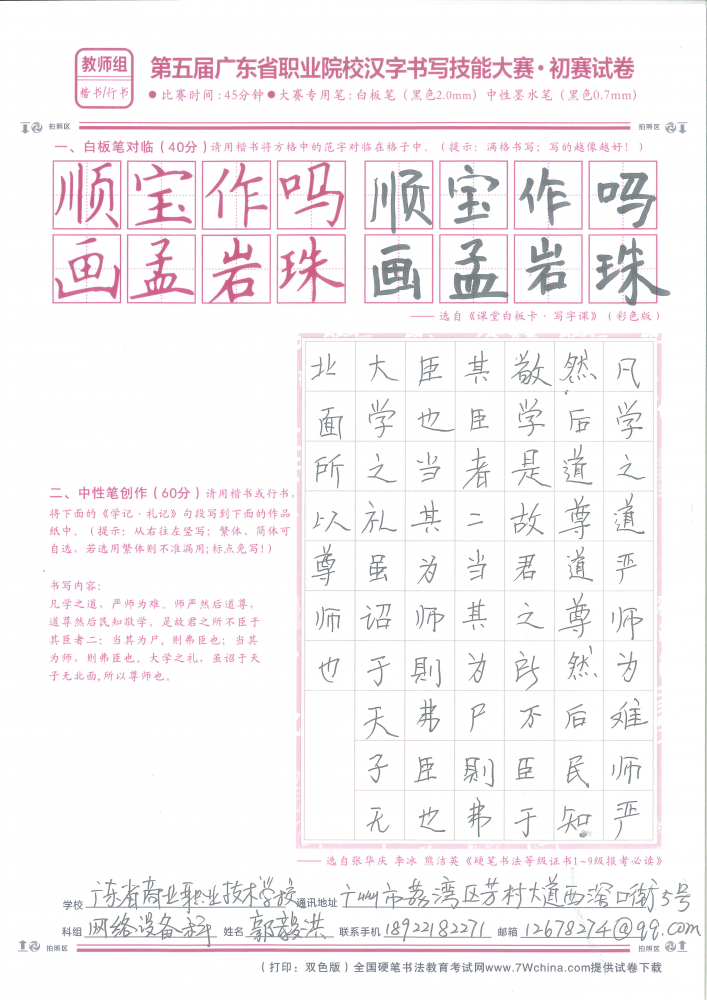 教师组
楷书/行书
第五届广东省职业院校汉字书写技能大赛·初赛试卷
●比赛时间:45分钟●大赛专用笔:白板笔（黑色2.0mm）中性墨水笔（黑色0.7mm）
拍照区
拍照区
一、白板笔对临（40分）请用楷书将方格中的范字对临在格子中。（提示：满格书写；写的越像越好！）
顺宝作吗 顺宝作吗
画孟岩珠 画孟岩珠
——选自《课堂白板卡·写字课》（彩色版）
凡学之道严师为难师严
然后道尊道尊然后民知
敬学是故君之所不臣于
其臣者二当其为尸則弗
臣也当其为师則弗臣也
大学之礼虽诏于天子无
北面所以尊师也
二、中性笔创作（60分）请用楷书或行书,
将下面的《学记·礼记》句段写到下面的作品
纸中。（提示：从右往左竖写；繁体、简体可
自选，若选用繁体则不准漏用;标点免写！）
书写内容:
凡学之道，严师为难。师严然后道尊，
道尊然后民知敬学。是故君之所不臣于
其臣者二：当其为尸，则弗臣也；当其
为师，则弗臣也。大学之礼，虽诏于天
子无北面,所以尊师也。
——选自张华庆 李冰 熊洁英《硬笔书法等级证书1~9级报考必读》
学校 广东省商业职业技术学校 通讯地址 广州市荔湾区芳村大道西滘口街5号
科组 网络设备科 姓名 郭毅洪 联系手机 18922182271 邮箱 12678274@qq.com
拍照区
拍照区
（打印：双色版）全国硬笔书法教育考试网www.7Wchina.com提供试卷下载